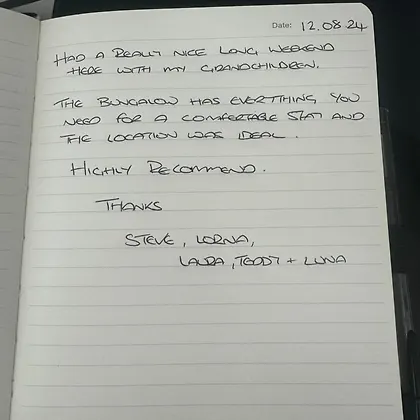 Date: 12.08.24
HAD A REALLY NICE LONG WEEKEND
HERE WITH MY GRANDCHILDREN.
THE BUNGALOW HAS EVERYTHING YOU
NEED FOR A COMFORTABLE STAY AND
THE LOCATION WAS IDEAL.
HIGHLY RECOMMEND.
THANKS
STEVE, LORNA,
LAURA, TEDDY + LUNA